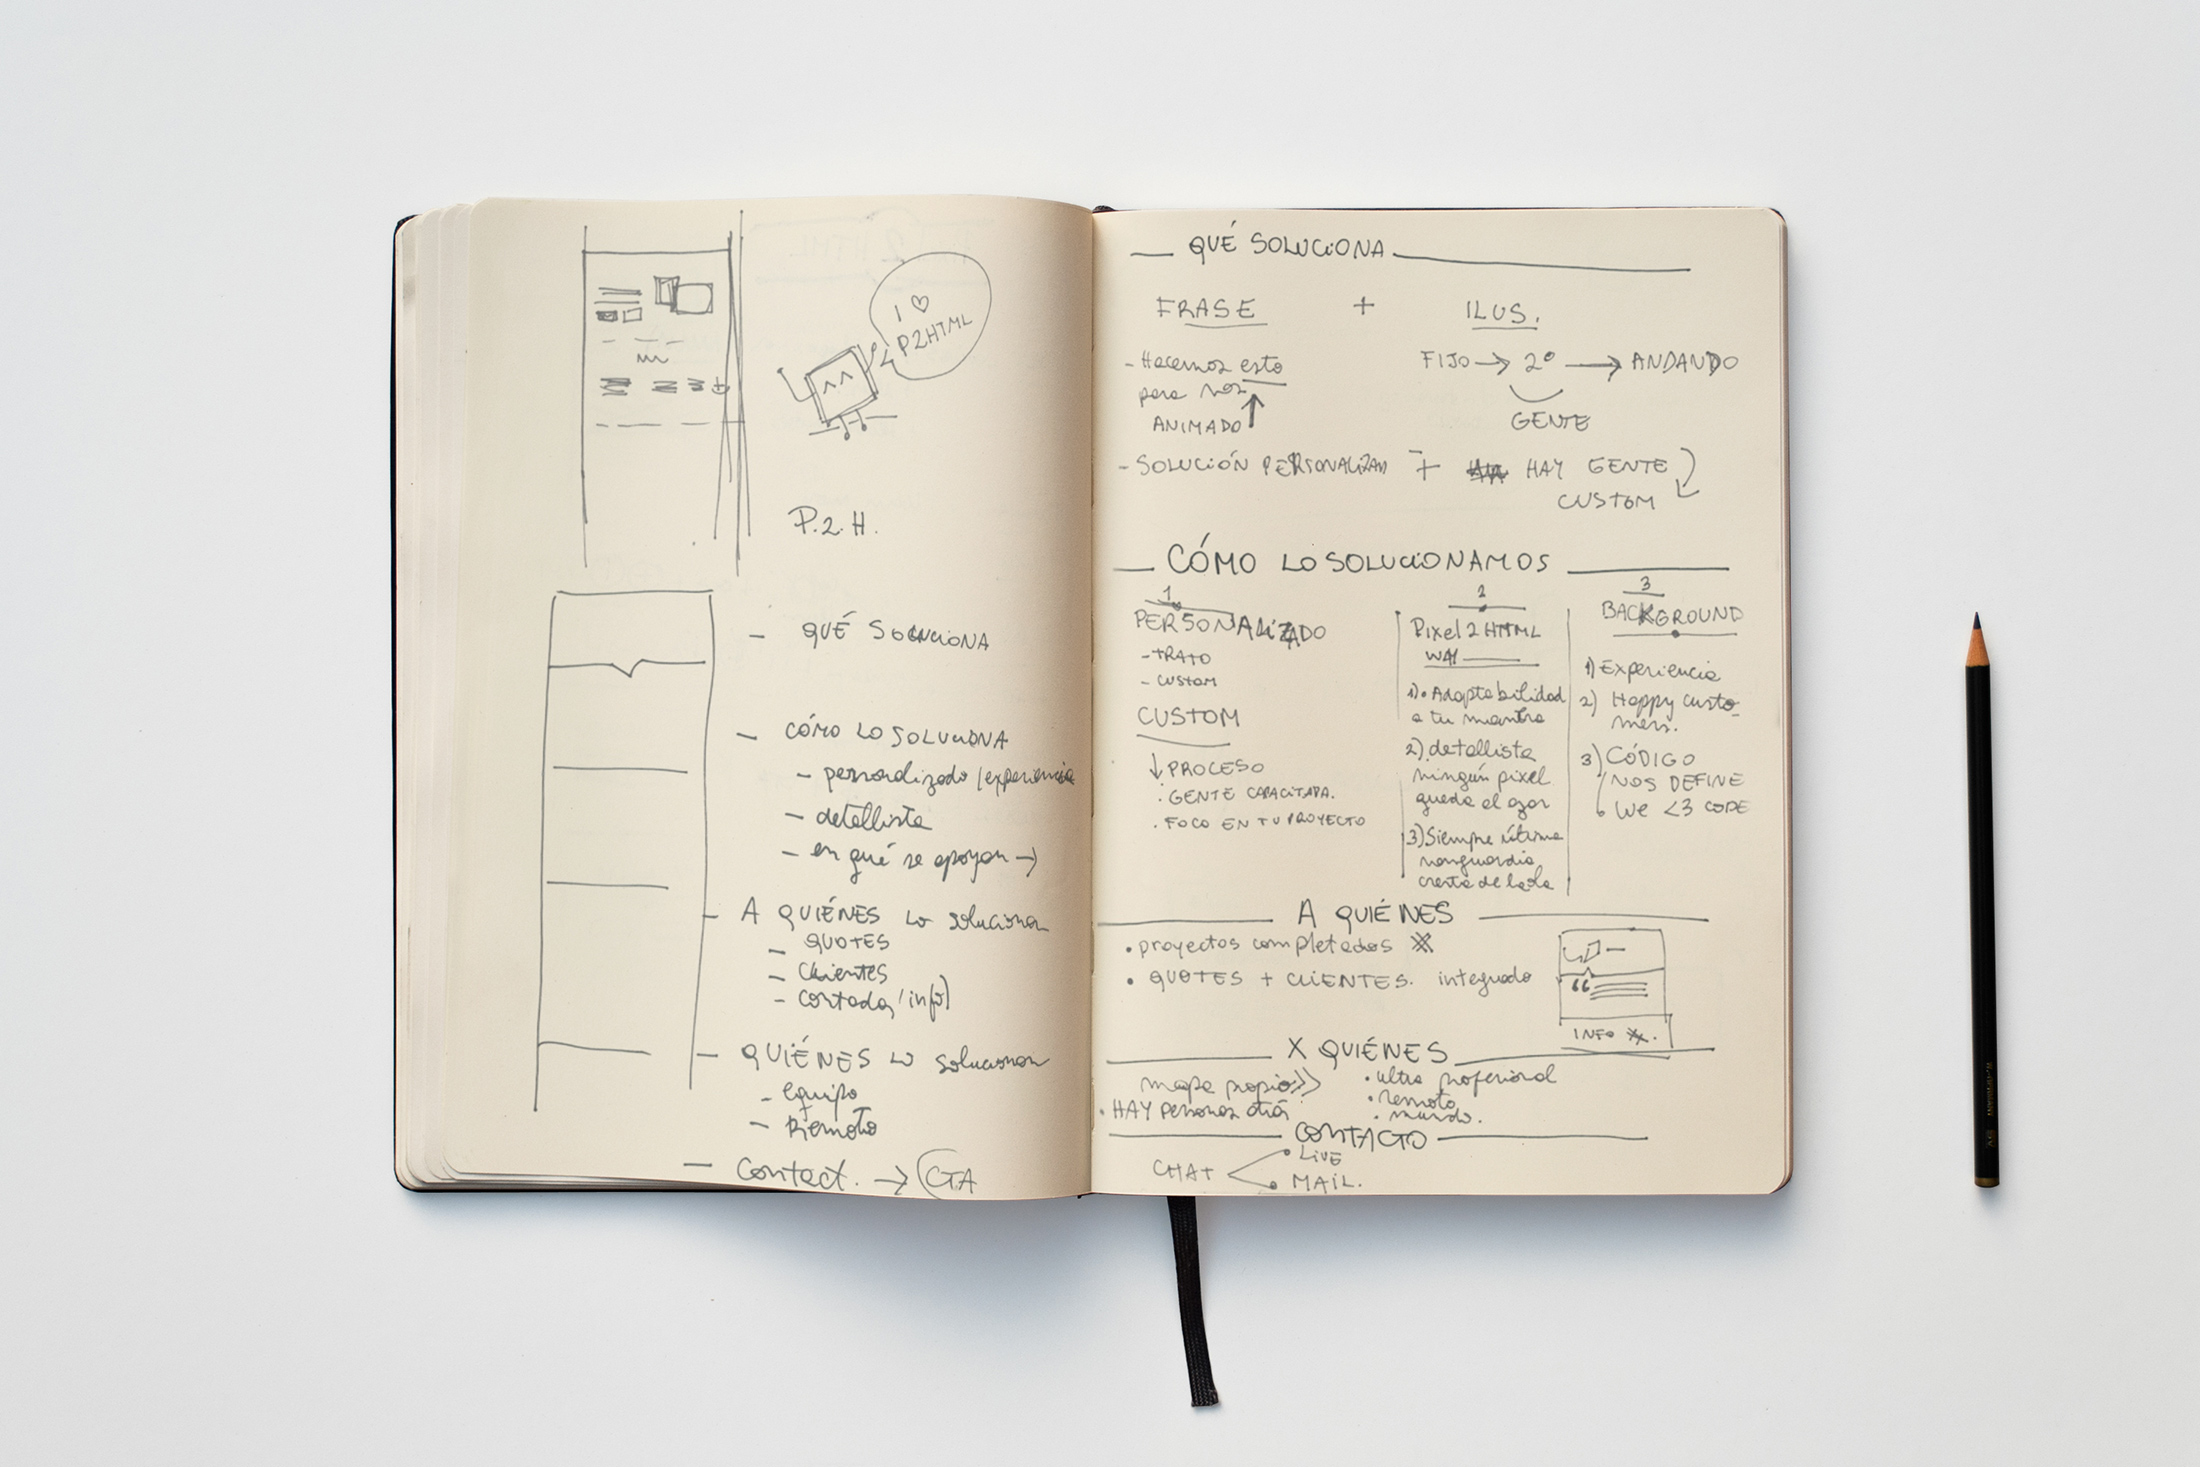 I ♡
P2HTML
P.2.H.
— QUÉ SOLUCIONA
— CÓMO LO SOLUCIONA
— personalizado / experiencia
— detallista
— en qué se apoyan →
— A QUIÉNES LO solucionan
— QUOTES
— Clientes
— contador/inf
— QUIÉNES LO solucionan
— Equipo
— Remoto
— Contact. → CTA
QUÉ SOLUCIONA
FRASE + ILUS.
- Hacemos esto
para
ANIMADO
FIJO → 2º → ANDANDO
GENTE
- SOLUCIÓN + HAY GENTE
CUSTOM
CÓMO LO SOLUCIONAMOS
1
PERSONALIZADO
- TRATO
- CUSTOM
CUSTOM
↓ PROCESO
. GENTE CAPACITADA.
. FOCO EN TU PROYECTO
2
Pixel 2 HTML
WAY
1). Adaptabilidad
a tu
2) detallista
ningún pixel
queda al azar
3) Siempre última
vanguardia
cresta de la ola
3
BACKGROUND
1) Experiencia
2) Happy custo-
mers.
3) CÓDIGO
NOS DEFINE
We <3 CODE
A QUIÉNES
• proyectos completados
• QUOTES + CLIENTES. integrado
“
INFO
X QUIÉNES
mapa propio >>
• HAY personas atrás
• ultra profesional
• remoto
• mundo.
CONTACTO
CHAT
• LIVE
• MAIL.